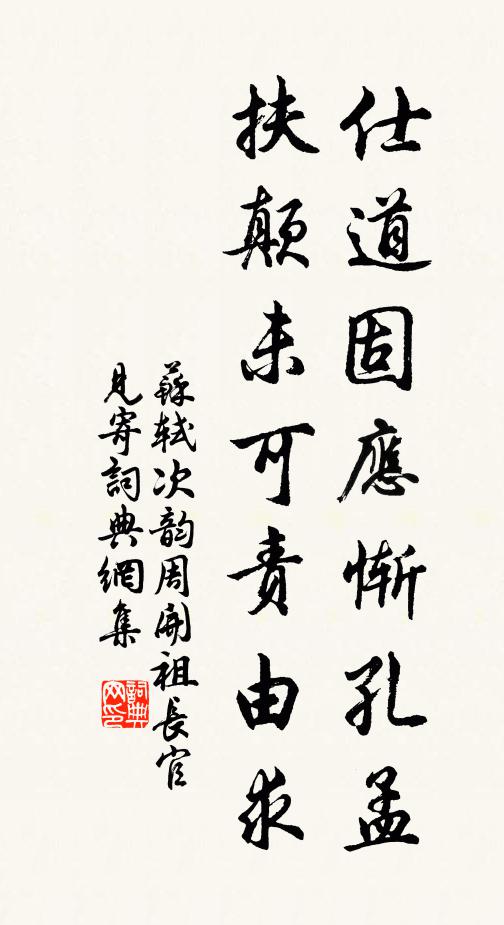 仕道固應慚孔孟
扶顛未可責由求
蘇軾次韵周開祖長官
見寄詞典網集
詞典
网印